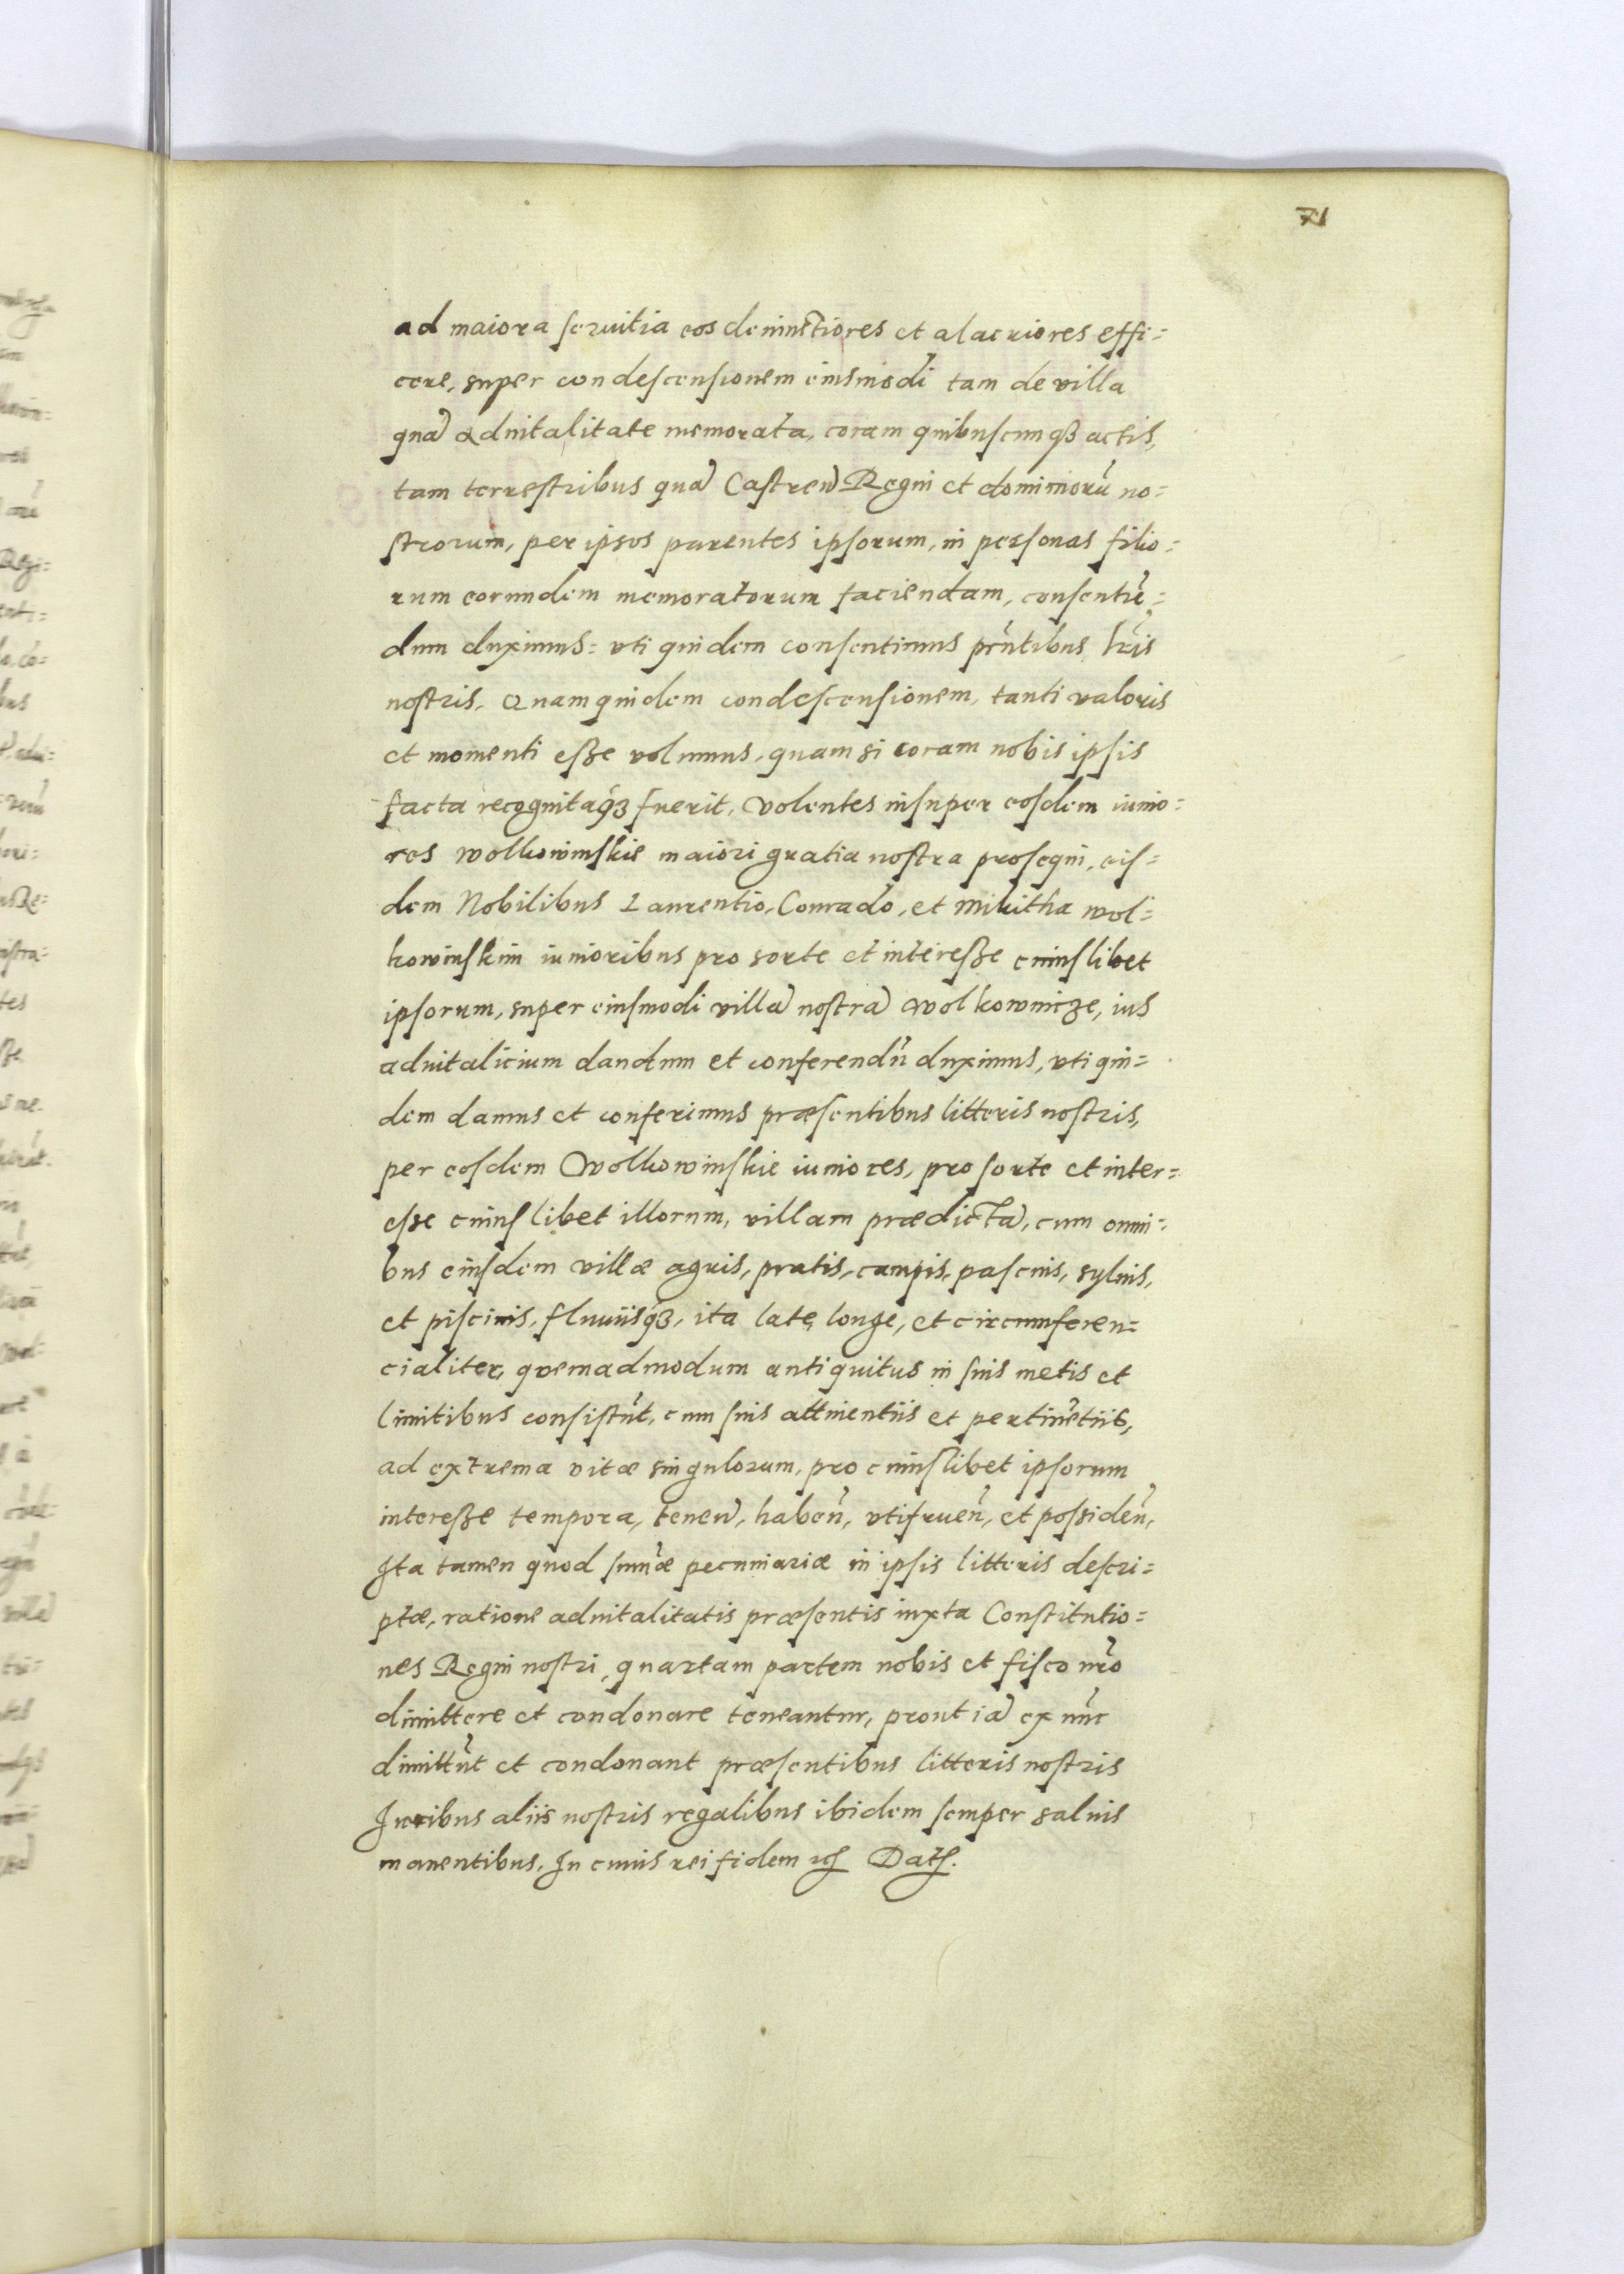 71
ad maiora seruitia eos deuinctiores et alacriores effi=
cere, super condescensionem eiusmodi tam de villa
qua᷈ aduitalitate memorata, coram quibuscunq́ꝫ actis,
tam terrestribus qua᷈ Castren᷈ Regni et dominiorũ no=
strorum, per ipsos parentes ipsorum, in personas filio=
rum eorundem memoratorum faciendam, consentiẽ=
dum duximus: vti quidem consentimus pñtibus lr̃is
nostris. Quamquidem condescensionem, tanti valoris
et momenti esse volumus, quam si coram nobis ipsis
facta recognitaq́ꝫ fuerit, Volentes insuper eosdem iunio=
res Wolkowinskie maiori gratia nostra prosequi, eis=
dem Nobilibus Laurentio, Conrado, et Mikitha Wol=
kowinskim iunioribus pro sorte et interesse cuiuslibet
ipsorum, super eiusmodi villa᷈ nostra᷈ Wolkownicze, ius
aduitalicium dandum et conferendũ duximus, vti qui=
dem damus et conferimus præsentibus litteris nostris,
per eosdem Wolkowinskie iuniores, pro sorte et inter=
esse cuiuslibet illorum, villam prædicta᷈, cum omni=
bus eiusdem villæ agris, pratis, campis, pascuis, syluis,
et piscinis, fluuiisq́ꝫ, ita late, longe, et circumferen=
cialiter, quemadmodum antiquitus in suis metis et
limitibus consistũt, cum suis attinentiis et pertinẽtiis,
ad extrema vitæ singulorum, pro cuiuslibet ipsorum
interesse tempora, tenen᷈, habeñ, vtifrueñ, et possideñ,
Ita tamen quod sum̃æ pecuniariæ in ipsis litteris descri=
ptæ, ratione aduitalitatis præsentis iuxta Constitutio=
nes Regni nostri, quartam partem nobis et fisco nr̃o
dimittere et condonare teneantur, prout ia᷈ ex nũc
dimittũt et condonant præsentibus litteris nostris
Iuribus aliis nostris regalibus ibidem semper saluis
manentibus. In cuius rei fidem ꝛc̃ Datꝭ.